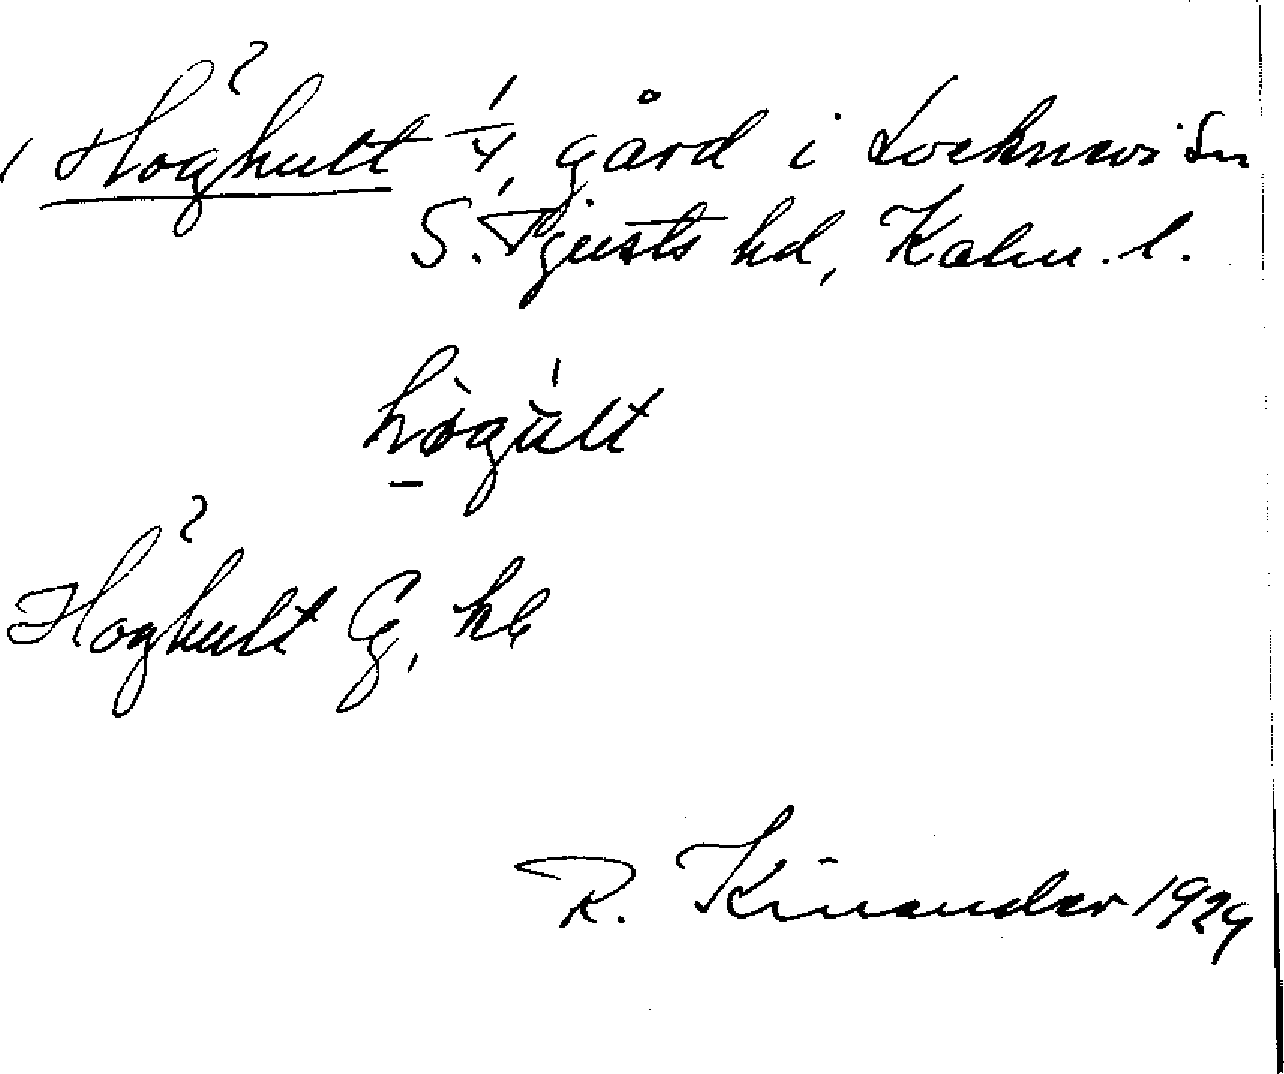 Höghult 1/4, gård i Locknevi Sn
S. Tjusts hd, Kalm. l.
högult
Höghult G, kb
R. Kinander 1929